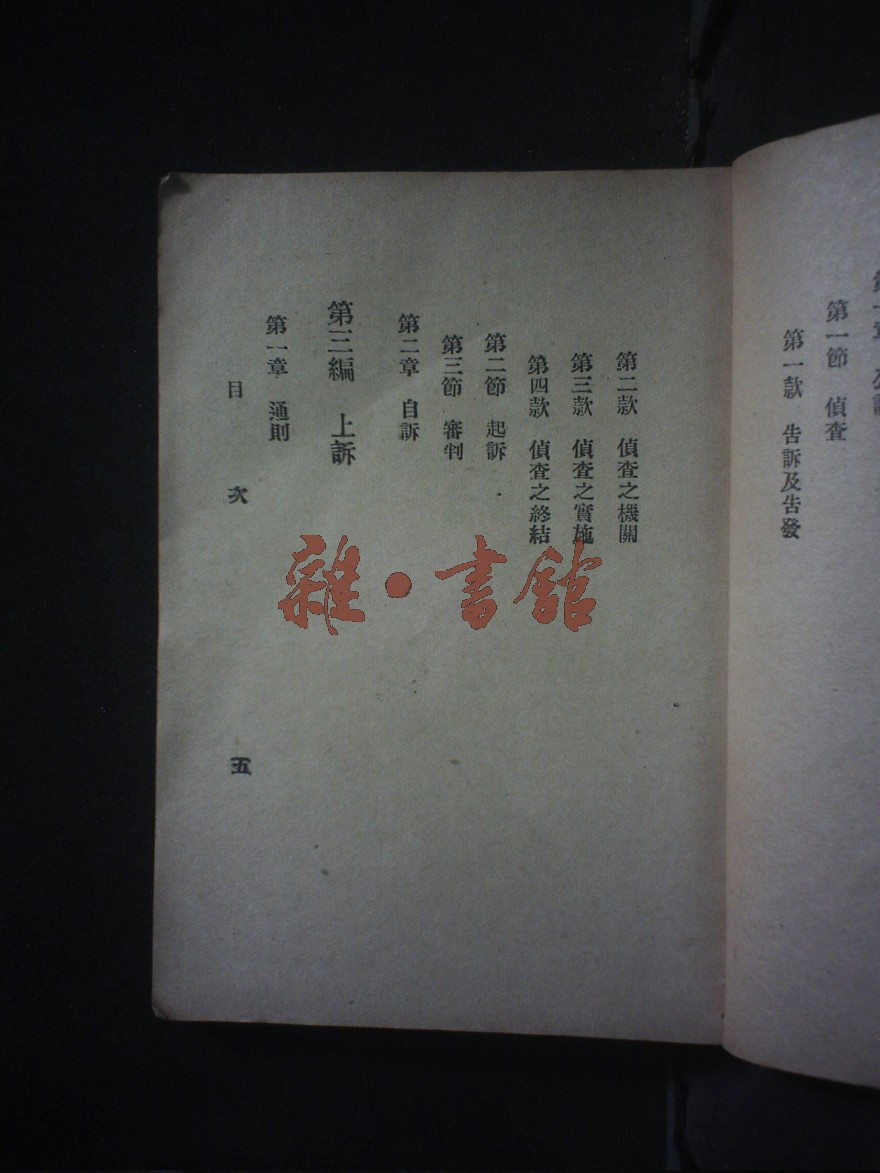 第一節　偵査
第一款　告訴及告發
第二款　偵査之機關
第三款　偵査之實施
第四款　偵査之終結
第二節　起訴
第三節　審判
第二章　自訴
第三編　上訴
第一章　通則
目次
五
雜·書館